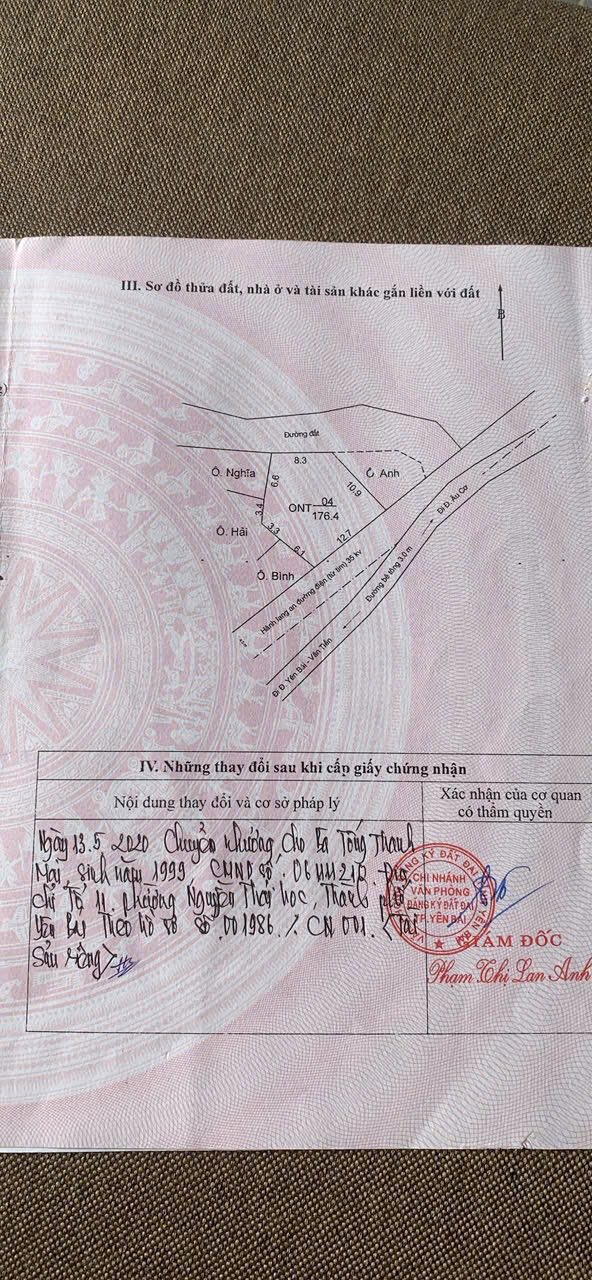 III. Sơ đồ thửa đất, nhà ở và tài sản khác gắn liền với đất
B
Đường đất
8.3
Ô. Nghĩa
6.6
Ô Anh
10.9
ONT 04
176.4
3.4
Ô. Hải
3.3
6.1
12.7
Ô. Bình
Hành lang an đường điện (từ tim) 35 kv
Đi Đ. Âu Cơ
Đường bê tông 3.0 m
Đi Đ. Yên Bái - Văn Tiến
IV. Những thay đổi sau khi cấp giấy chứng nhận
Nội dung thay đổi và cơ sở pháp lý
Xác nhận của cơ quan
có thẩm quyền
Ngày 13.5 2020 Chuyển nhượng cho Bà Tống Thanh
May, sinh năm 1999 CMND số: Địa
chỉ Tổ 11, phường Nguyễn Thái học, Thành phố
Yên Bái Theo hồ sơ số 001986. / CN 001. < Tài
Sản riêng >
CHI NHÁNH
VĂN PHÒNG
ĐĂNG KÝ ĐẤT ĐAI
TP.YÊN BÁI
GIÁM ĐỐC
Phạm Thị Lan Anh